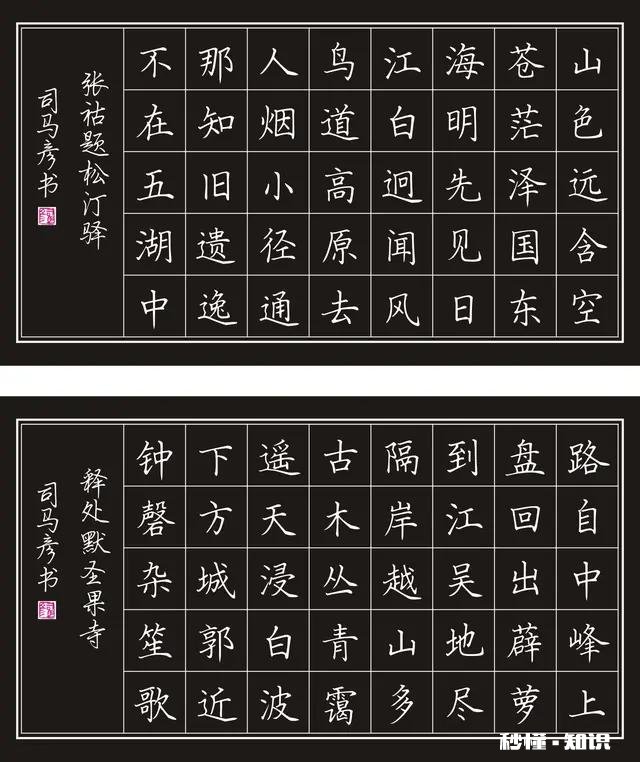 山色远含空
苍茫泽国东
海明先见日
江白迥闻风
鸟道高原去
人烟小径通
那知旧遗逸
不在五湖中
张祜题松汀驿
司马彦书
路自中峰上
盘回出薜萝
到江吴地尽
隔岸越山多
古木丛青霭
遥天浸白波
下方城郭近
钟磬杂笙歌
释处默圣果寺
司马彦书
秒懂·知识